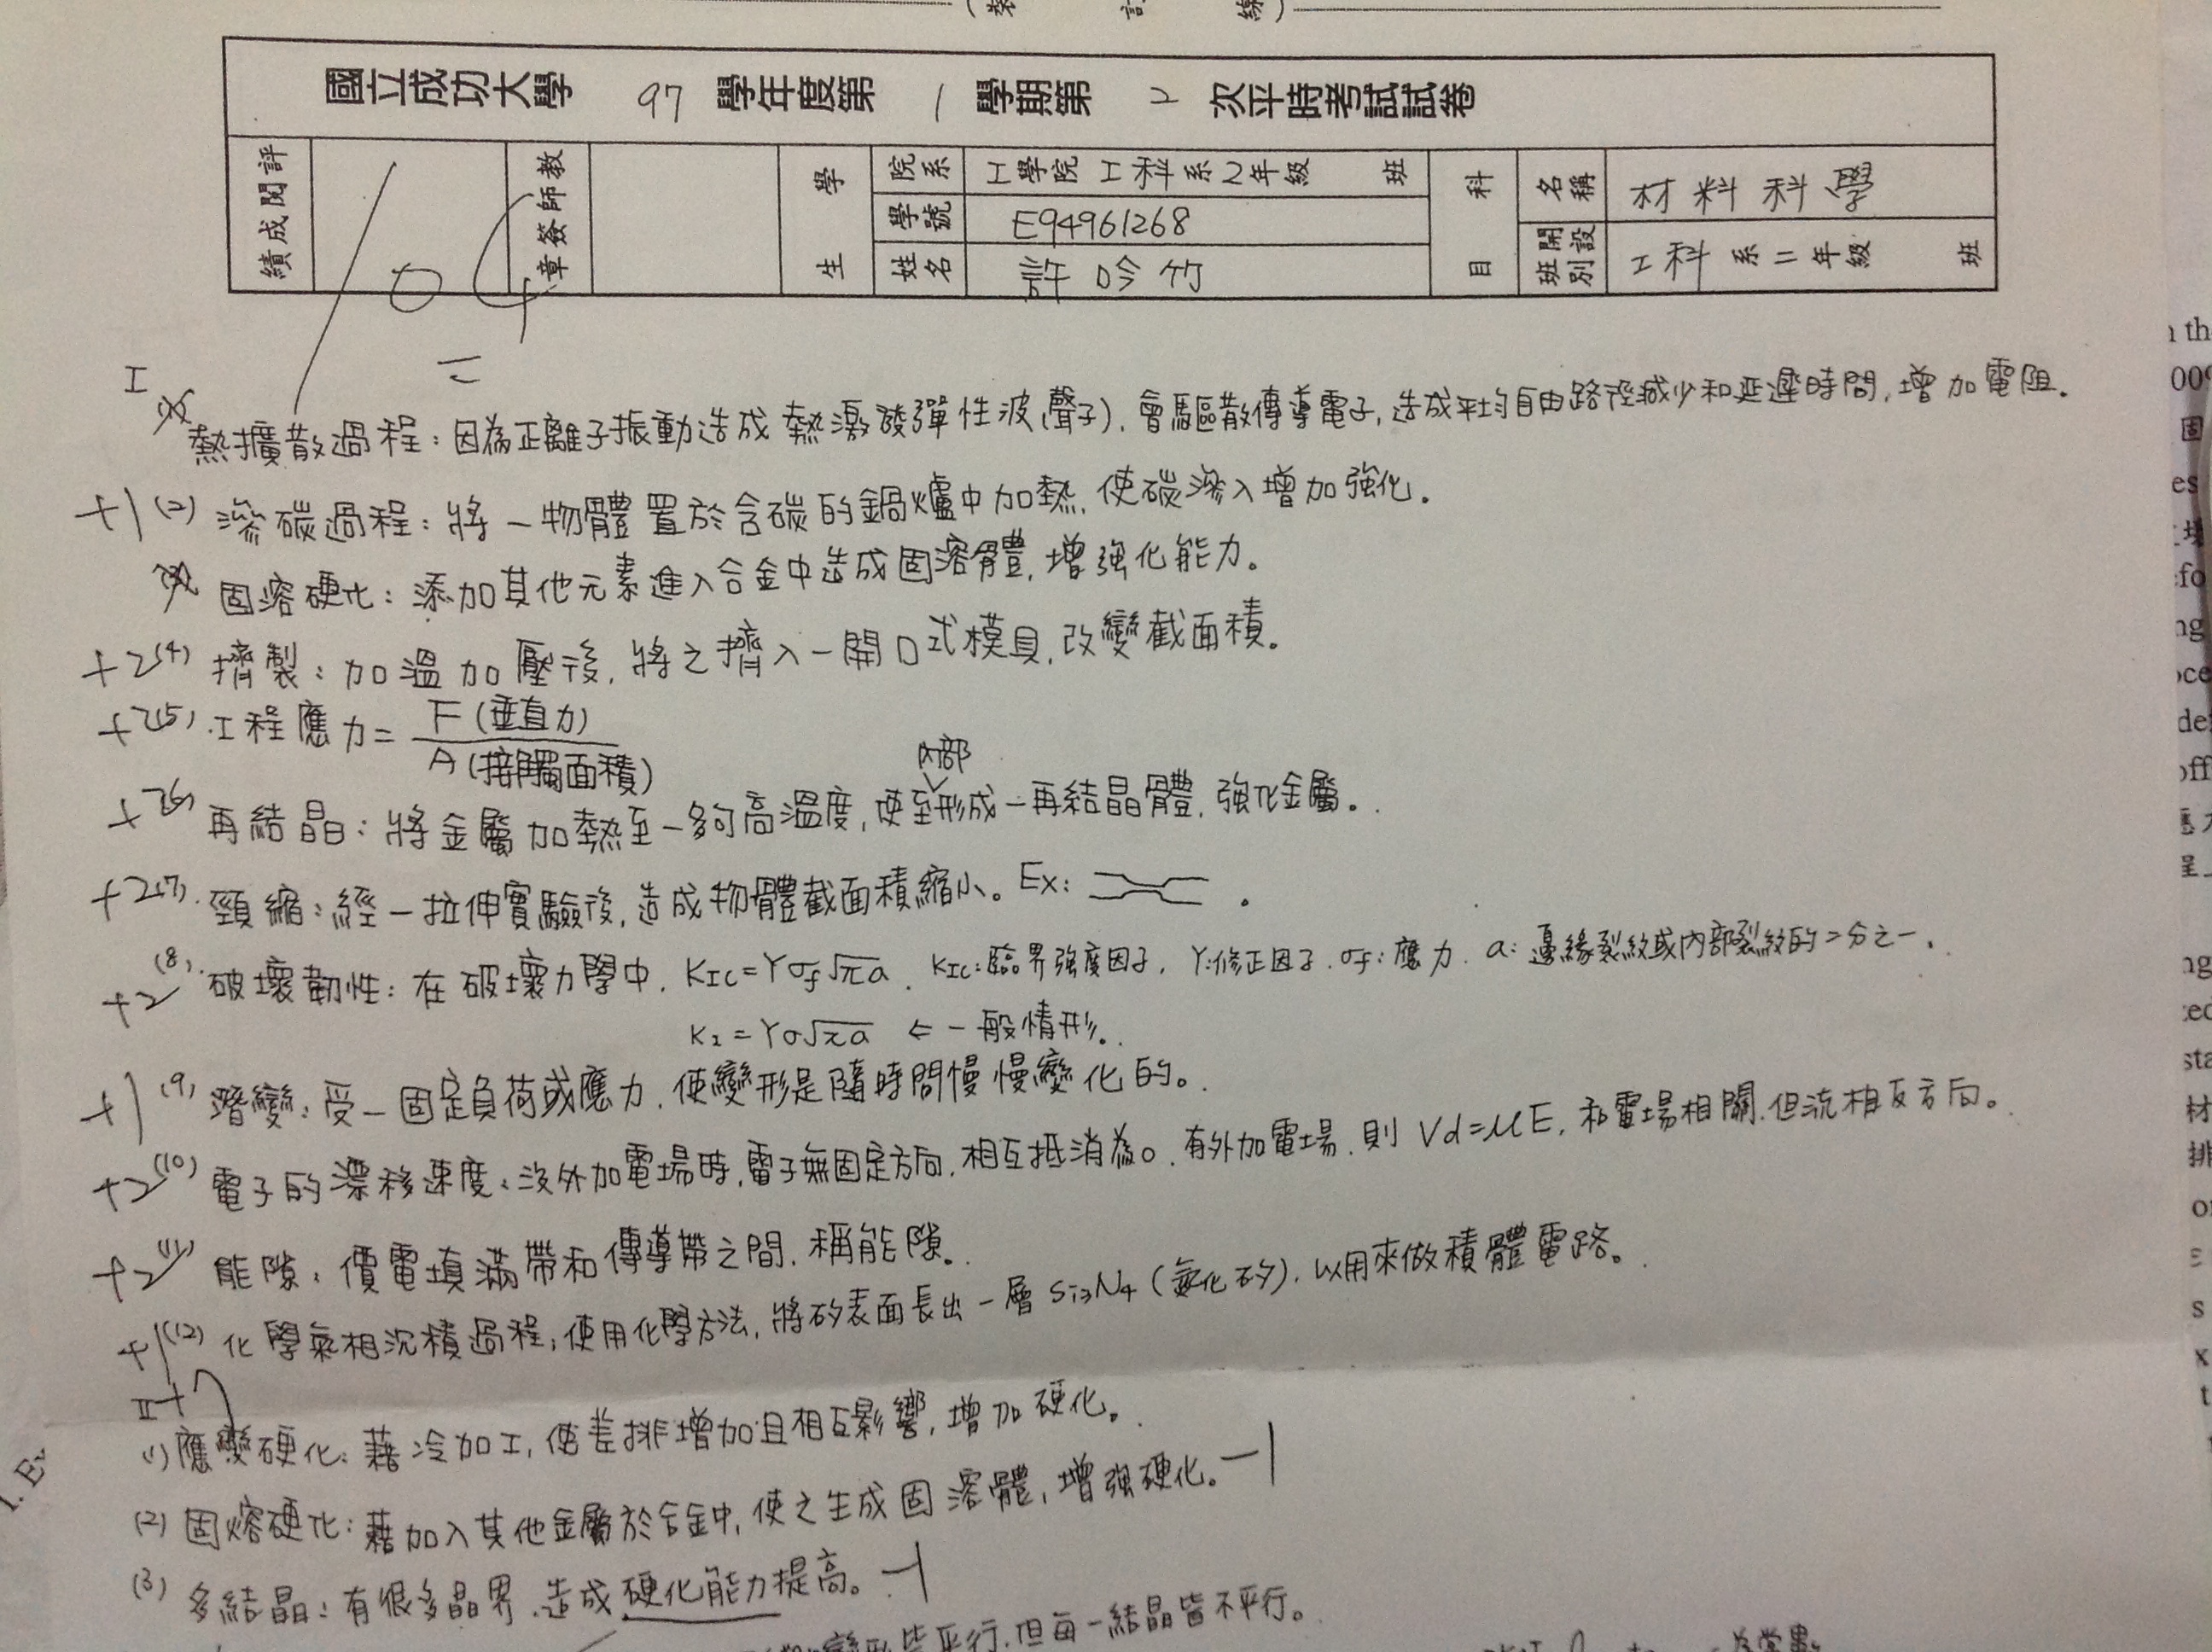 國立成功大學 97 學年度第 1 學期第 2 次計算測驗試卷
評閱成績
教師簽章
學生
院系 工學院 工科系 2 年級 班
學號 E94961268
姓名 許吟竹
科目
名稱 材料科學
開設班別 工科系二年級 班
I
熱擴散過程：因為正離子振動造成熱激發彈性波(聲子)，會驅散傳導電子，造成平均自由路徑減少和延遲時間，增加電阻.
+1 (2) 滲碳過程：將一物體置於含碳的鍋爐中加熱，使碳滲入增加強化。
固溶硬化：添加其他元素進入合金中造成固溶體，增強化能力。
+2 (4) 擠製：加溫加壓後，將之擠入一開口式模具，改變截面積。
+2 (5). 工程應力 = F (垂直力) / A (接觸面積)
內部
+2 (6) 再結晶：將金屬加熱至一夠高溫度，使至形成一再結晶體，強化金屬。
+2 (7). 頸縮：經一拉伸實驗後，造成物體截面積縮小。Ex:
+2 (8). 破壞韌性：在破壞力學中，KIC = Yσf√πa . KIC: 臨界強度因子, Y: 修正因子. σf: 應力. a: 邊緣裂紋或內部裂紋的2分之一.
KI = Yσ√πa ← 一般情形.
+1 (9) 潛變：受一固定負荷或應力，使變形是隨時間慢慢變化的。
+2 (10) 電子的漂移速度：沒外加電場時，電子無固定方向，相互抵消為0. 有外加電場，則 Vd=μE, 和電場相關，但流相反方向。
+2 (11) 能隙：價電填滿帶和傳導帶之間，稱能隙.
+1 (12) 化學氣相沉積過程：使用化學方法，將矽表面長出一層 Si3N4 (氮化矽)，以用來做積體電路。
II
(1) 應變硬化：藉冷加工，使差排增加且相互影響，增加硬化。
(2) 固熔硬化：藉加入其他金屬於合金中，使之生成固溶體，增強硬化。 -1
(3) 多結晶：有很多晶界，造成硬化能力提高。 -1
平行，但每一結晶皆不平行。